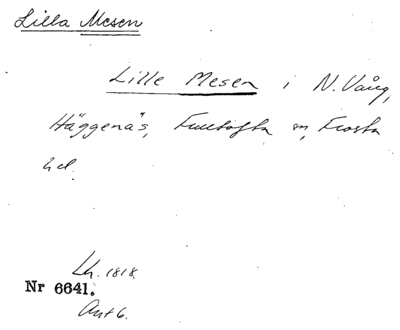 Lilla Mesen
Lille Mesen i N. Vång,
Häggenäs, Fulltofta sn, Frosta
hd.
Lh. 1818.
Nr 6641.
Ant 6.